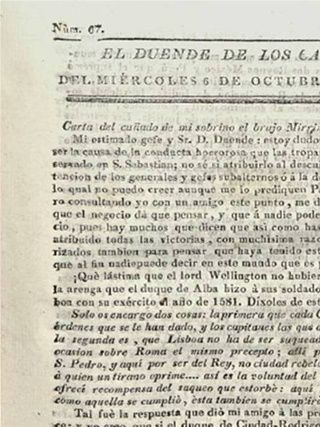 Núm. 67.
EL DUENDE DE LOS CA
DEL MIÉRCOLES 6 DE OCTUBR
Carta del cuñado de mi sobrino el brujo Mirri
Mi estimado gefe y Sr. D. Duende: estoy dudo
ser la causa de la conducta horrorosa que las tropa
servado en S. Sebastian; no sé si atribuirlo al descu
tencion de los generales y gefes subalternos ó á la d
lo qual no puedo creer aunque me lo prediquen P
ro consultando yo con un amigo este punto, me d
que el negocio da que pensar, y que á nadie pode
cio, pues hay muchos que dicen que asi como has
atribuido todas las victorias, con muchísima razo
rizados tambien para pensar que haya tenido est
que al fin nadie puede decir en este mundo que es p
¡Qué lástima que el lord Wellington no hubier
la arenga que el duque de Alba hizo á sus soldado
boa con su exército el año de 1581. Díxoles de est
Solo os encargo dos cosas: la primera que cada C
órdenes que se le han dado, y los capitanes las que d
la segunda es, que Lisboa no ha de ser saquead
ocasion sobre Roma el mismo precepto; allí p
S. Pedro, y aquí por ser del Rey, no ciudad rebeld
á quien un tirano oprime.... así es la voluntad del
ofrecí recompensa del saqueo que estorbé: aquí
como aquella se cumplió, ésta tambien se cumplirá
Tal fué la respuesta que dió mi amigo á las pre
que si el duque de Ciudad-Rodri